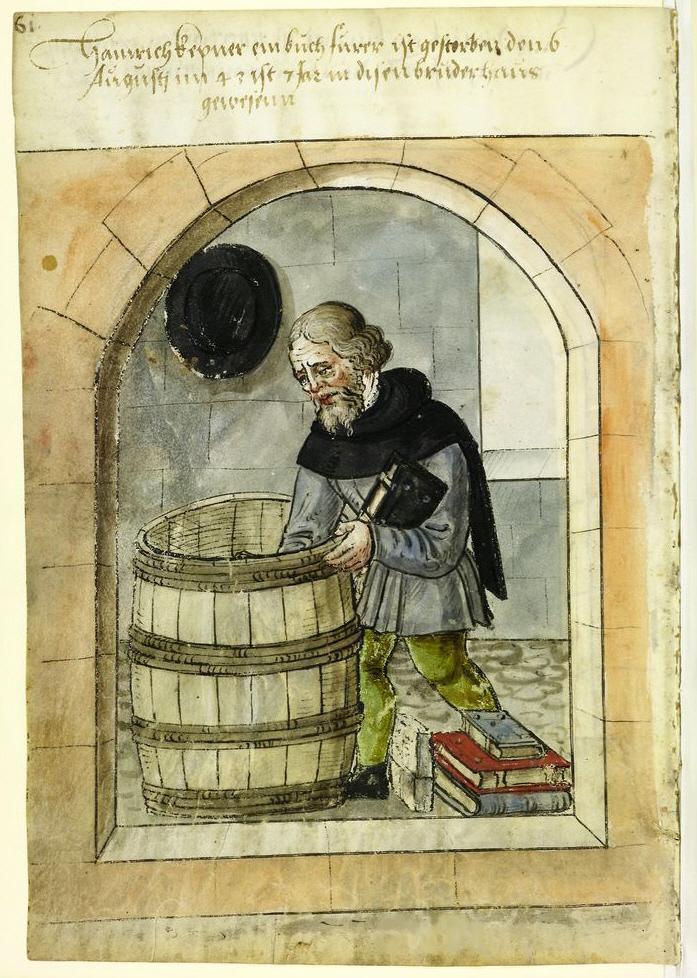 61.
Hainrich kepner ein büch fürer ist gestorben den 6
Augustj im 4 3 ist 7 Jar in disen brüderhaüs
gewesenn